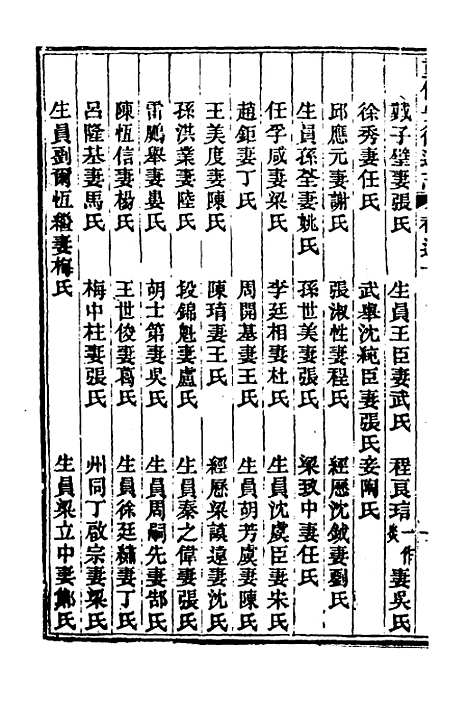 戴子璧妻張氏　生員王臣妻武氏　程良瑄一作 妻吳氏
徐秀妻任氏　武舉沈純臣妻張氏妾陶氏
邱應元妻謝氏　張淑性妻程氏　經歷沈鉞妻劉氏
生員孫荃妻姚氏　孫世美妻張氏　梁玫中妻任氏
任孚咸妻梁氏　李廷相妻杜氏　生員沈虞臣妻朱氏
趙鉅妻丁氏　周開基妻王氏　生員胡芳虞妻陳氏
王美度妻陳氏　陳琦妻王氏　經歷梁謨遠妻沈氏
孫洪業妻陸氏　段錦魁妻盧氏　生員秦之偉妻張氏
雷鵬舉妻婁氏　胡士第妻吳氏　生員周嗣先妻郜氏
陳恆信妻楊氏　王世俊妻葛氏　生員徐廷繡妻丁氏
呂隆基妻馬氏　梅中柱妻張氏　州同丁啟宗妻梁氏
生員劉爾恆繼妻梅氏　生員梁立中妻鄭氏